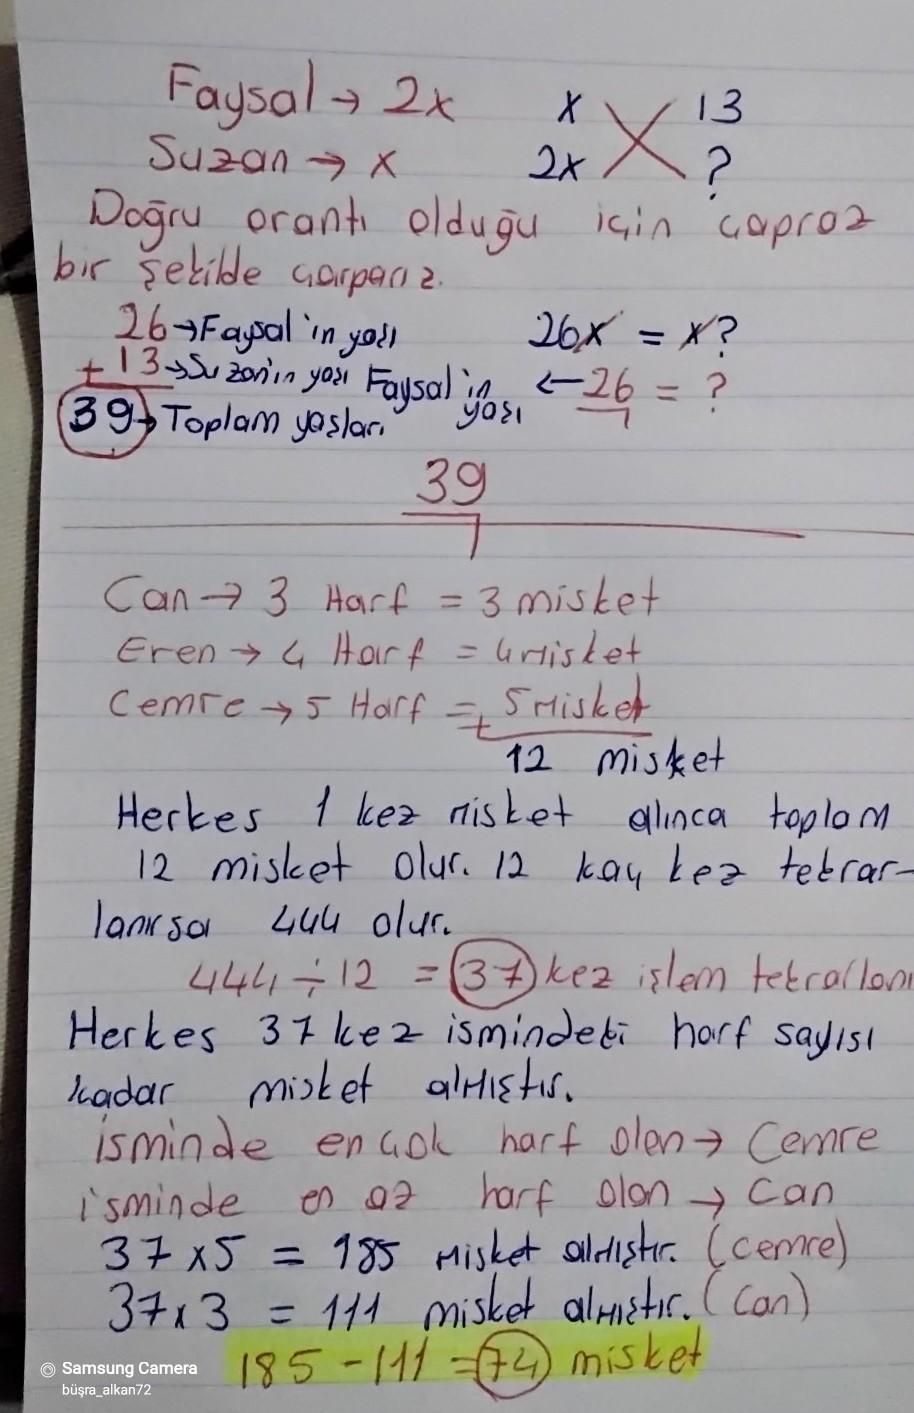 Faysal → 2x x 13
Suzan → x 2x ?
Doğru orantı olduğu için çapraz
bir şekilde çarparız.
26 → Faysal'ın yaşı 26x = x?
+ 13 → Suzan'ın yaşı Faysal'ın yaşı ← 26 = ?
39 → Toplam yaşları
39
Can → 3 Harf = 3 misket
Eren → 4 Harf = 4 Misket
Cemre → 5 Harf = + 5 Misket
12 misket
Herkes 1 kez misket alınca toplam
12 misket olur. 12 kaç kez tekrar-
lanırsa 444 olur.
444 ÷ 12 = 37 kez işlem tekrarlanı
Herkes 37 kez ismindeki harf sayısı
kadar misket almıştır.
isminde en çok harf olan → Cemre
isminde en az harf olan → Can
37 x 5 = 185 misket almıştır. (cemre)
37 x 3 = 111 misket almıştır. (Can)
185 - 111 = 74 misket
Samsung Camera
büşra_alkan72